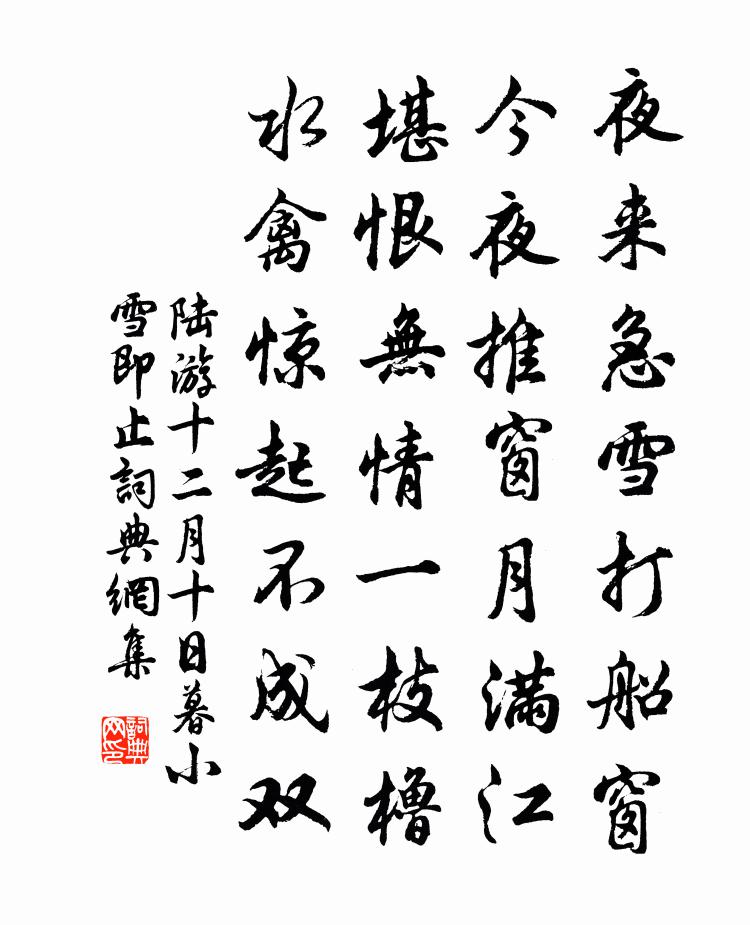 夜来急雪打船窗
今夜推窗月满江
堪恨無情一枝橹
水禽惊起不成双
陆游十二月十日暮小
雪即止詞典網集
詞典
网印